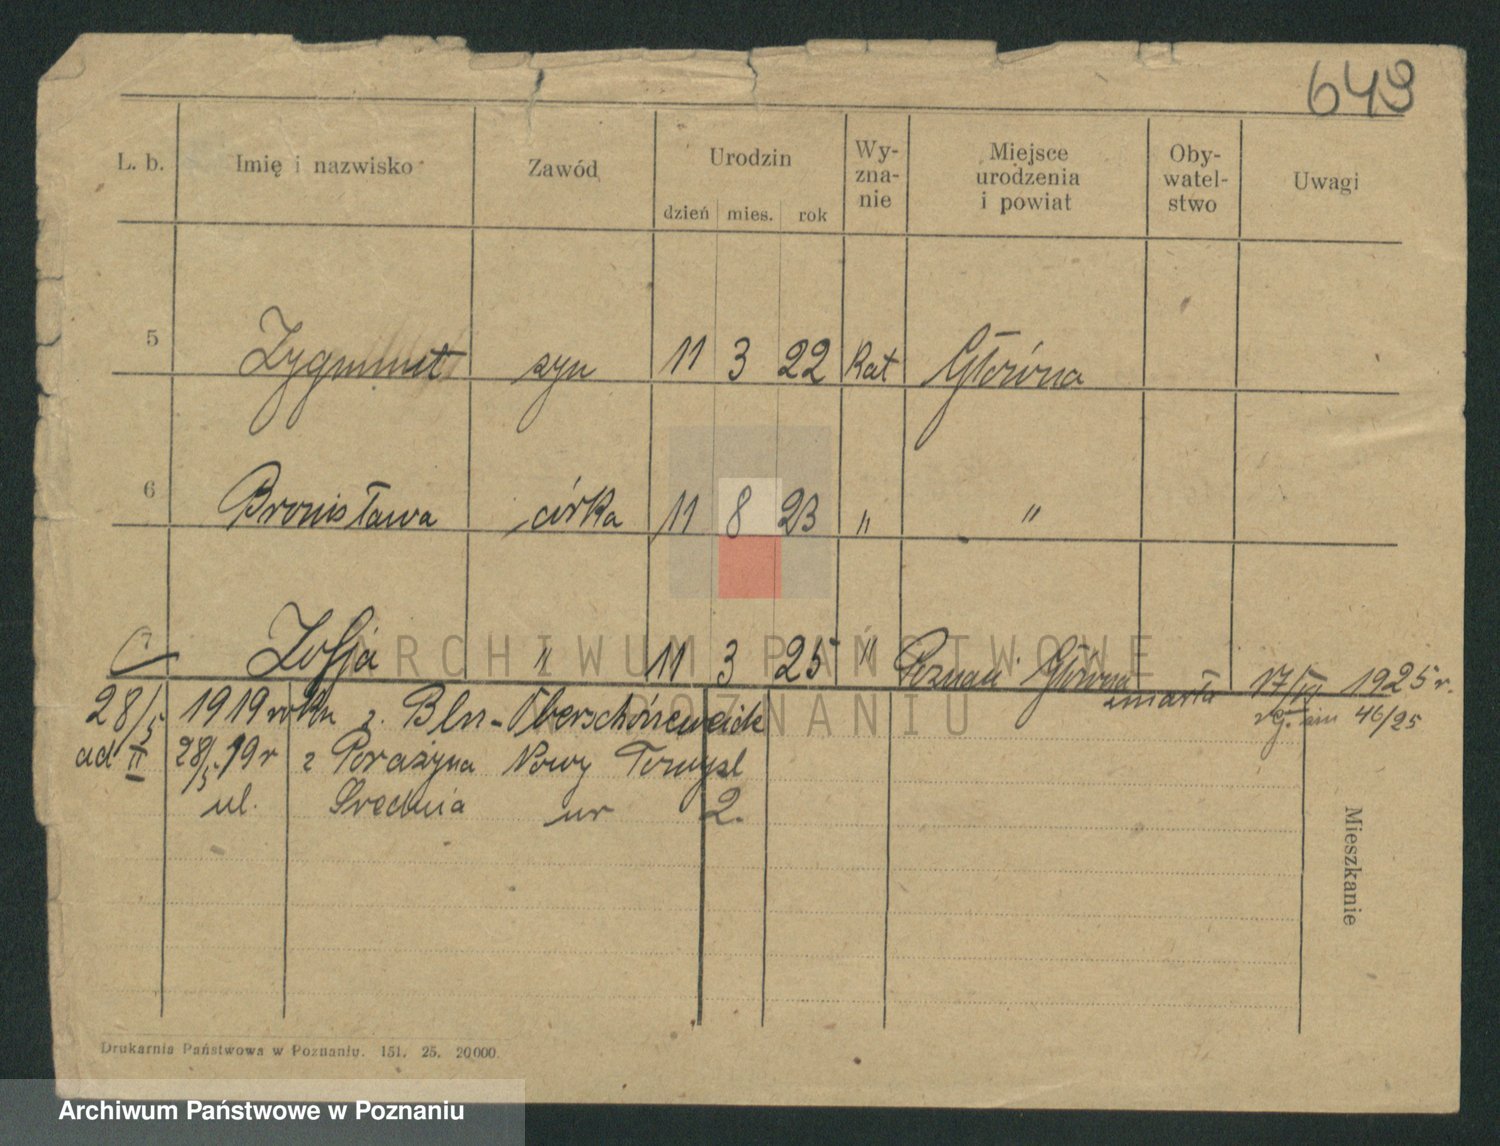 643
L. b. Imię i nazwisko Zawód Urodzin Wy-zna-nie Miejsce urodzenia i powiat Oby-watel-stwo Uwagi
dzień mies. rok
5 Zygmunt syn 11 3 22 Kat Główna
6 Bronisława córka 11 8 23 " "
Zofja " 11 3 25 " Poznań Główna zmarła 17/ 1925 r.
46/25
28/5 1919 roku z. Bln-Oberschöneweide
ad II 28/5 19 r z Porażyna Nowy Tomyśl
ul. Średnia nr 2.
Mieszkanie
ARCHIWUM PAŃSTWOWE
W POZNANIU
Drukarnia Państwowa w Poznaniu. 151. 25. 20000.
Archiwum Państwowe w Poznaniu